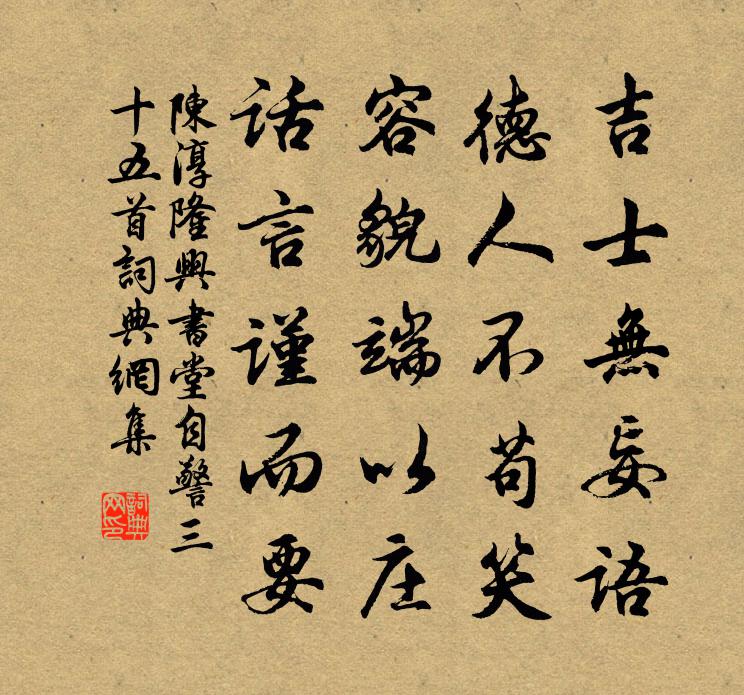 吉士無妄語
德人不苟笑
容貌端以庄
話言謹而要
陳淳隆興書堂自警三
十五首詞典網集
詞典網印